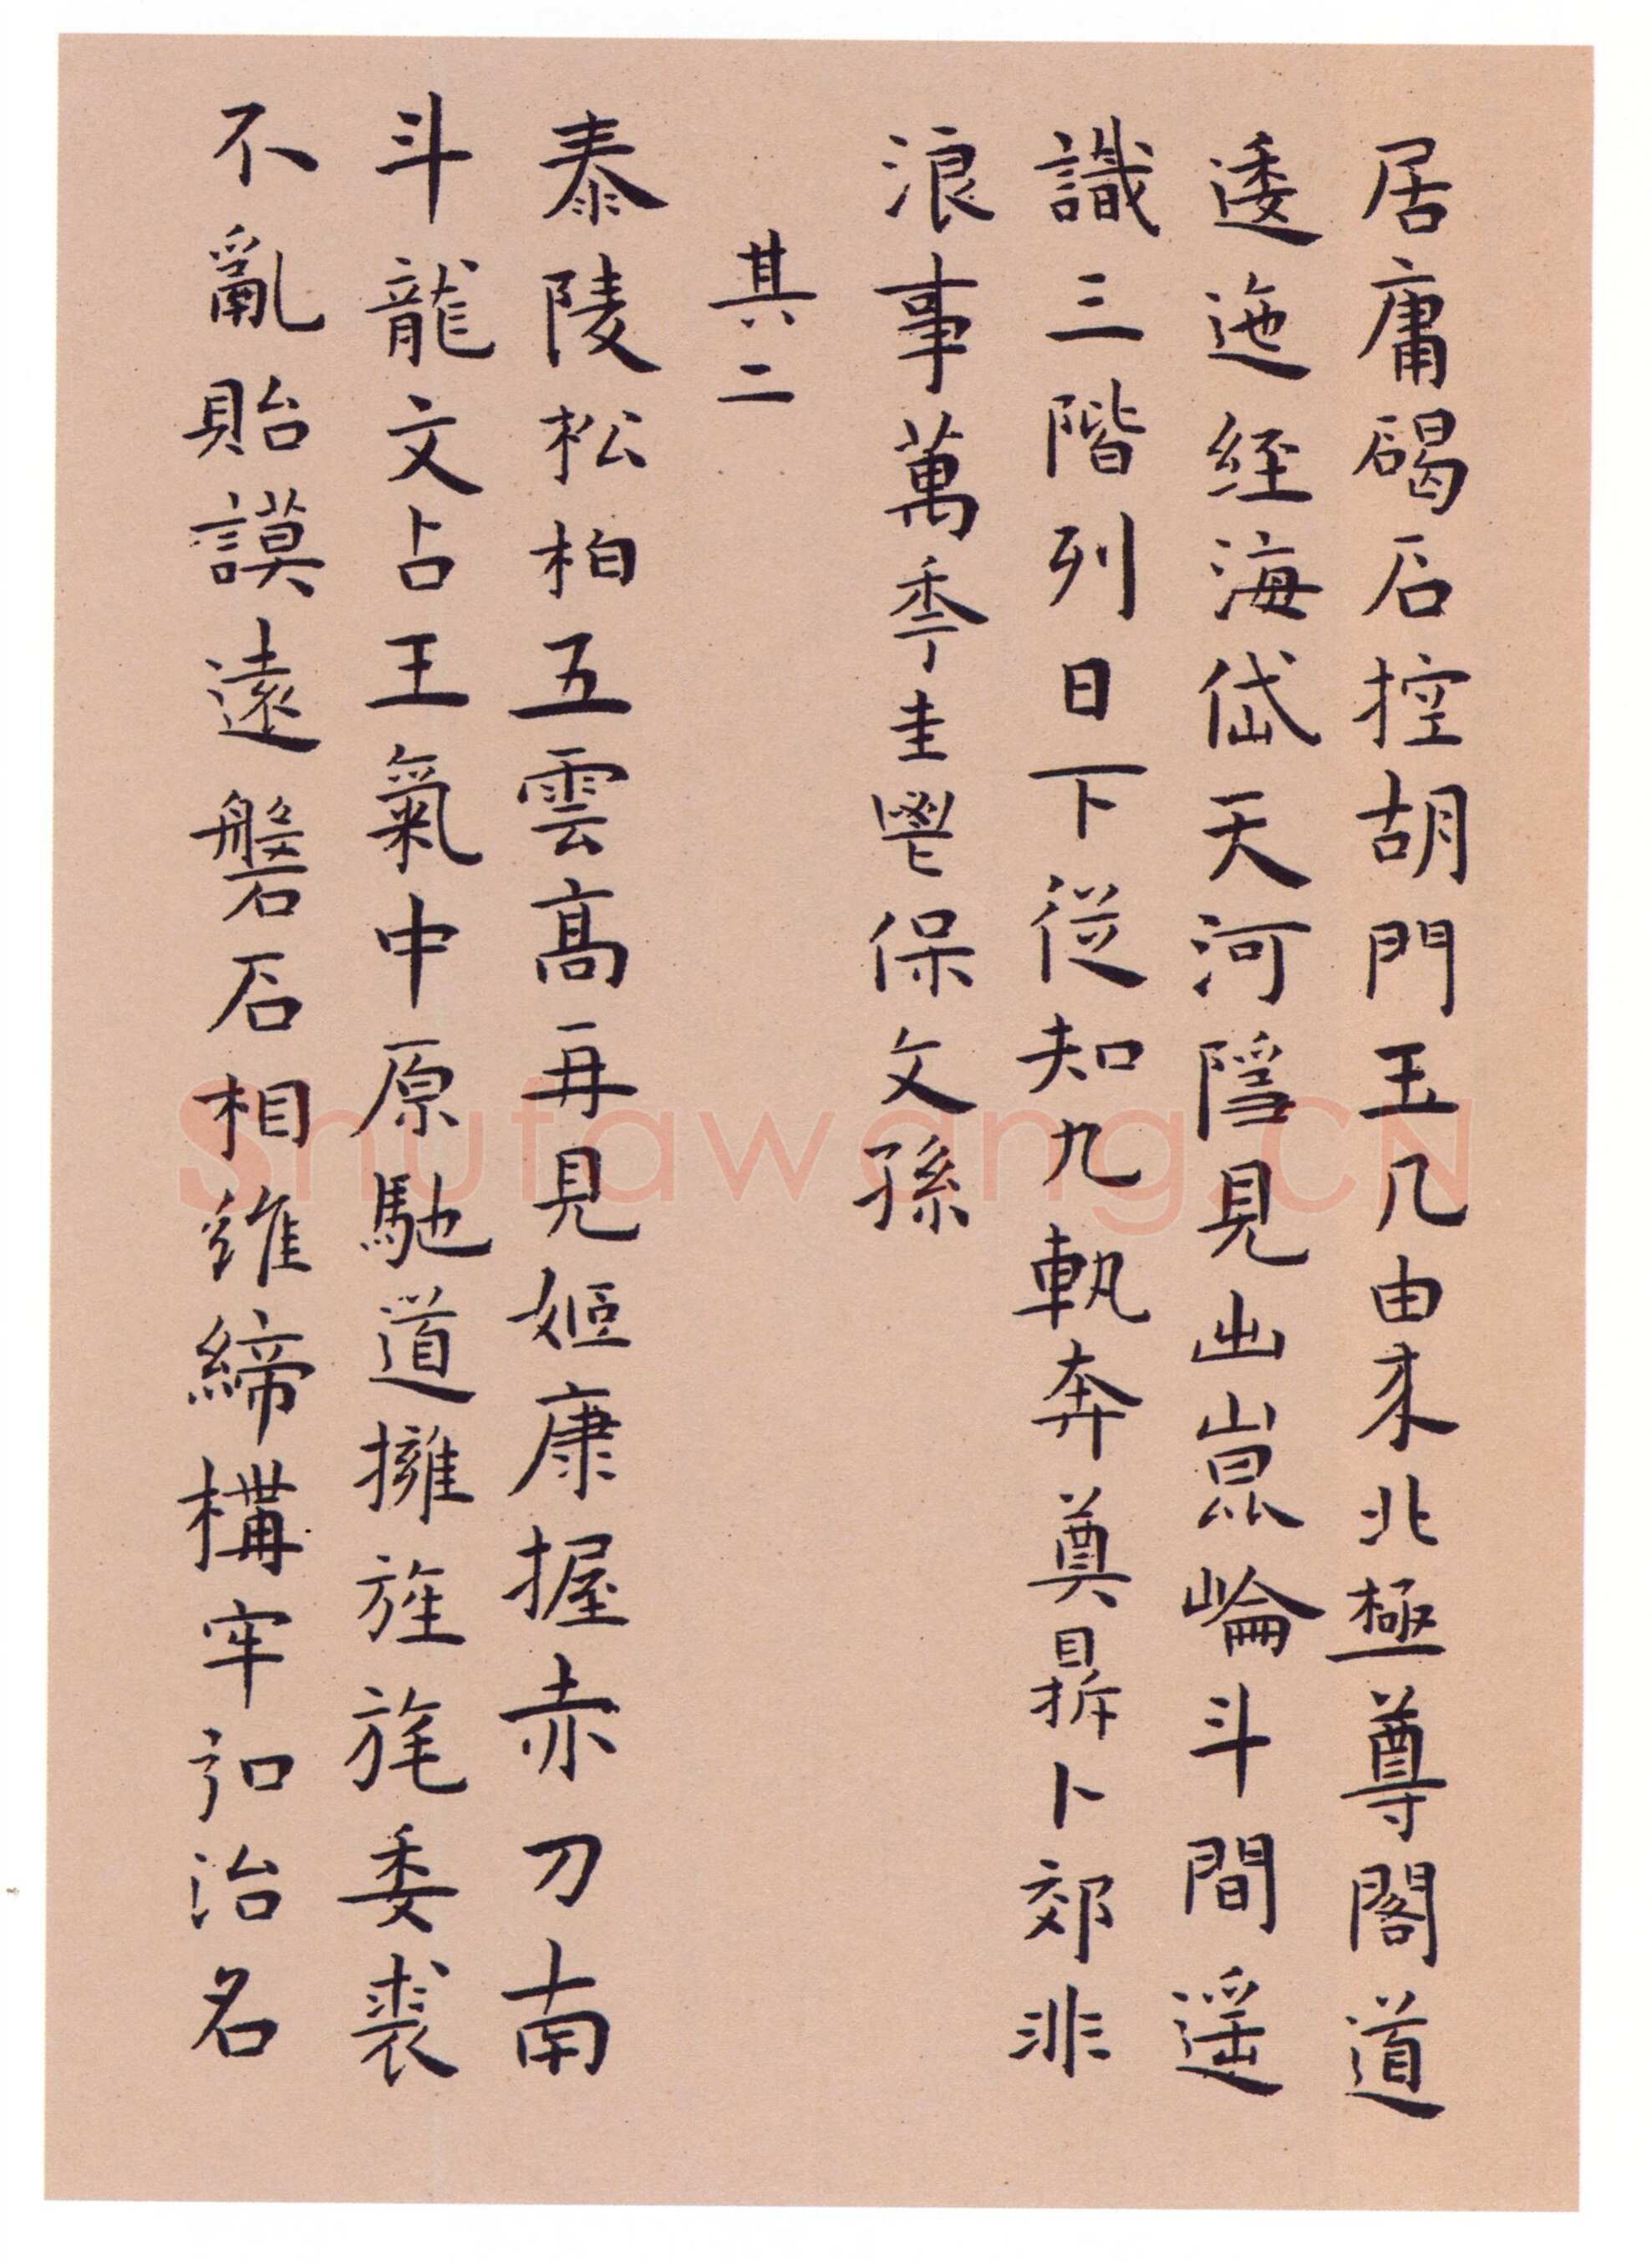 居庸碣石控胡門玉几由来北極尊閣道
逶迤經海岱天河隱見出崑崙斗間遥
識三階列日下從知九執奔奠鼎卜郊非
浪事萬季圭鬯保文孫
其二
泰陵松柏五雲高再見姬康握赤刀南
斗龍文占王氣中原馳道擁旌旄委裘
不亂貽謨遠磐石相維締構牢弘治名
Shufawang.CN